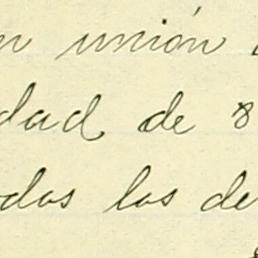 en unión
dad de 8
odos los de